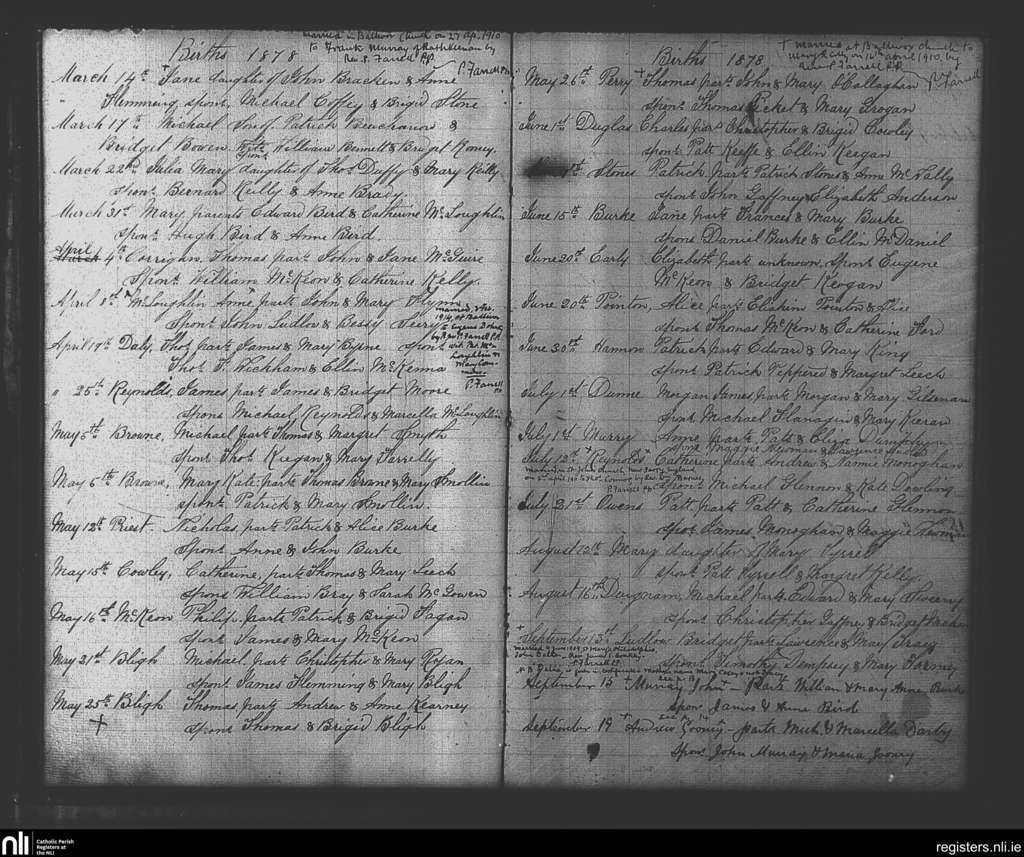 Births 1878
married in Ballivor Church on 27 Ap. 1910
to Frank Murray of Rathkeenan by
Rev. P. Farrell P.P.
P. Farrell PP
March 14th + Jane daughter of John Bracken & Anne
Flemming, spont Michael Coffey & Brigid Stone
March 17th Michael Son of Patrick Beuchanan &
Bridget Bowen. spont William Bennett & Bridget Roney.
March 22nd Julia Mary daughter of Thos Duffy & Mary Reilly
spont Bernard Reilly & Anne Brady
March 31st Mary parents Edward Bird & Catherine McLoughlin
spont Hugh Bird & Anne Bird.
April
March 4th Corrighn, Thomas part John & Jane McGuire
Spont William McKeon & Catherine Kelly.
April 8th McLoughlin Anne part John & Mary Flynn
Spont John Ludlow & Bessy Seery
married
by Rev. P. Farrell P.P.
P. Farrell
PP
April 19th Daly, Thos part James & Mary Byrne spont
Thos F. Wickham & Ellen McKenna
" 25th Reynolds, James part James & Bridget Moore
spont Michael Reynolds & Marcella McLoughlin
May 5th Browne, Michael part Thomas & Margret Smyth
spont Thos Keegan & Mary Farrelly
May 6th Browne, Mary Kate part Thomas Browne & Mary Smollin
spont Patrick & Mary Smollin.
May 12th Priest Nicholas, part Patrick & Alice Burke
Spont Anne & John Burke
May 15th Cowley, Catherine, part Thomas & Mary Leech
Spont William Bray & Sarah McGowen
May 16th McKeon Philip part Patrick & Brigid Fagan
spont James & Mary McKeon
May 21st Bligh Michael, part Christopher & Mary Ryan
spont James Flemming & Mary Bligh
May 25th Bligh Thomas, part Andrew & Anne Kearney
spont Thomas & Brigid Bligh
+
Births 1878
+ married at Ballivor church to
Mary Reilly on 10th april 1910, by
Rev P. Farrell P.P.
P. Farrell
May 26th Perry + Thomas part John & Mary O'Callaghan
spont Thomas Picket & Mary Grogan
June 1st Duglas Charles part Christopher & Brigid Cowley
spont Patt Keeffe & Ellen Keegan
1st Stones Patrick part Patrick Stones & Anne McNally
spont John Gaffney & Elizabeth Anderson
June 15th Burke Jane part Frances & Mary Burke
spont Daniel Burke & Ellen McDaniel
June 20th Early Elizabeth part unknown, Spont Eugene
McKeon & Bridget Keogan
June 20th Pointon, Alice part Eliakim Pointon & Alice
spont Thomas McKeon & Catherine Ford
June 30th Hannon Patrick part Edward & Mary King
spont Patrick Peppered & Margret Leech
July 1st Dunne Morgan James part Morgan & Mary Gilsenan
spont Michael Flanagin & Mary Kieran
July 1st Murry Anne part Patt & Eliza
spont Maggie Newman & Lawrence
July 12th + Reynolds Catherine part Andrew & Nannie Monoghan
P. Farrell PP spont Michael Glennon & Kate Dowling
July 21st Owens Patt part Patt & Catherine Glennon
spot James Monoghan & Maggie Newman
August 12th Mary daughter of Mary Tyrrell
spont Patt Tyrrell & Margret Kelly
August 16th Dargnam, Michael part Edward & Mary Sweeny
spont Christopher Gaffney & Bridget
+ September 15th Ludlow Bridget part Lawrence & Mary Tracy
P. Farrell P.P. Spont Timothy Dempsey & Mary Formey
September 15 + Murray John - Part William & Mary Anne Burke
Spon James & Anne Bird
see p. 14
September 19 + Andrew Gooney - parts Mich. & Marcella Darby
Spon. John Murray & Maria Goonry
nli
Catholic Parish
Registers at
the NLI
registers.nli.ie